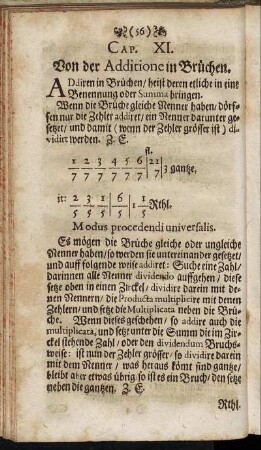 (56)
CAP. XI.
Von der Additione in Brüchen.
ADdiren in Brüchen/ heist deren etliche in eine
Benennung oder Summa bringen.
Wenn die Brüche gleiche Nenner haben/ dörf-
fen nur die Zehler addiret/ ein Nenner darunter ge-
setzet/ und damit (wenn der Zehler grösser ist) di-
vidirt werden. Z. E.
fl.
1 2 3 4 5 6 | 21 |
7 7 7 7 7 7 | 7 | 3 gantze,
it: 2 3 1 | 6 | 1
5 5 5 | 5 | 1 5 Rthl.
Modus procedendi universalis.
Es mögen die Brüche gleiche oder ungleiche
Nenner haben/ so werden sie untereinander gesetzet/
und auff folgende weise addiret: Suche eine Zahl/
darinnen alle Nenner dividendo auffgehen/ diese
setze oben in einen Zirckel/ dividire darein mit de-
nen Nennern/ die Producta multiplicire mit denen
Zehlern/ und setze die Multiplicata neben die Brü-
che. Wenn dieses geschehen/ so addire auch die
multiplicata, und setze unter die Summ die im Zir-
ckel stehende Zahl/ oder den dividendum Bruchs-
weise: ist nun der Zehler grösser/ so dividire darein
mit dem Nenner/ was heraus kömt sind gantze/
bleibt aber etwas übrig/ so ist es ein Bruch/ den setze
neben die gantzen. Z. E.
Rthl.